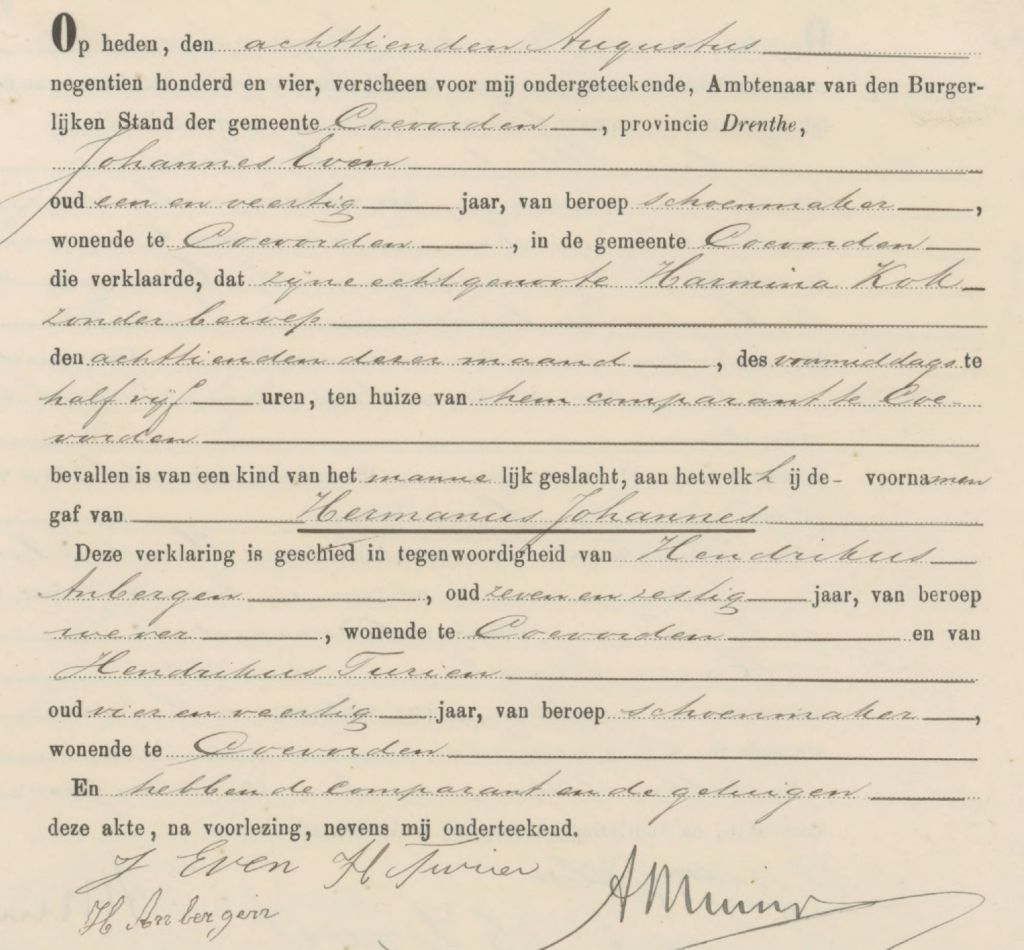 Op heden, den achttienden Augustus
negentien honderd en vier, verscheen voor mij ondergeteekende, Ambtenaar van den Burger-
lijken Stand der gemeente Coevorden, provincie Drenthe,
Johannes Even
oud een en veertig jaar, van beroep schoenmaker,
wonende te Coevorden, in de gemeente Coevorden
die verklaarde, dat zijne echtgenoote Harmina Kok
zonder beroep
den achttienden dezer maand, des voormiddags te
half vijf uren, ten huize van hem comparant te Coe-
vorden
bevallen is van een kind van het mannelijk geslacht, aan hetwelk hij de- voornamen
gaf van Hermanus Johannes
Deze verklaring is geschied in tegenwoordigheid van Hendrikus
Anbergen, oud zeven en zestig jaar, van beroep
wever, wonende te Coevorden en van
Hendrikus Turien
oud vier en veertig jaar, van beroep schoenmaker,
wonende te Coevorden
En hebben de comparant en de getuigen
deze akte, na voorlezing, nevens mij onderteekend.
J Even H Turien
H Anbergen